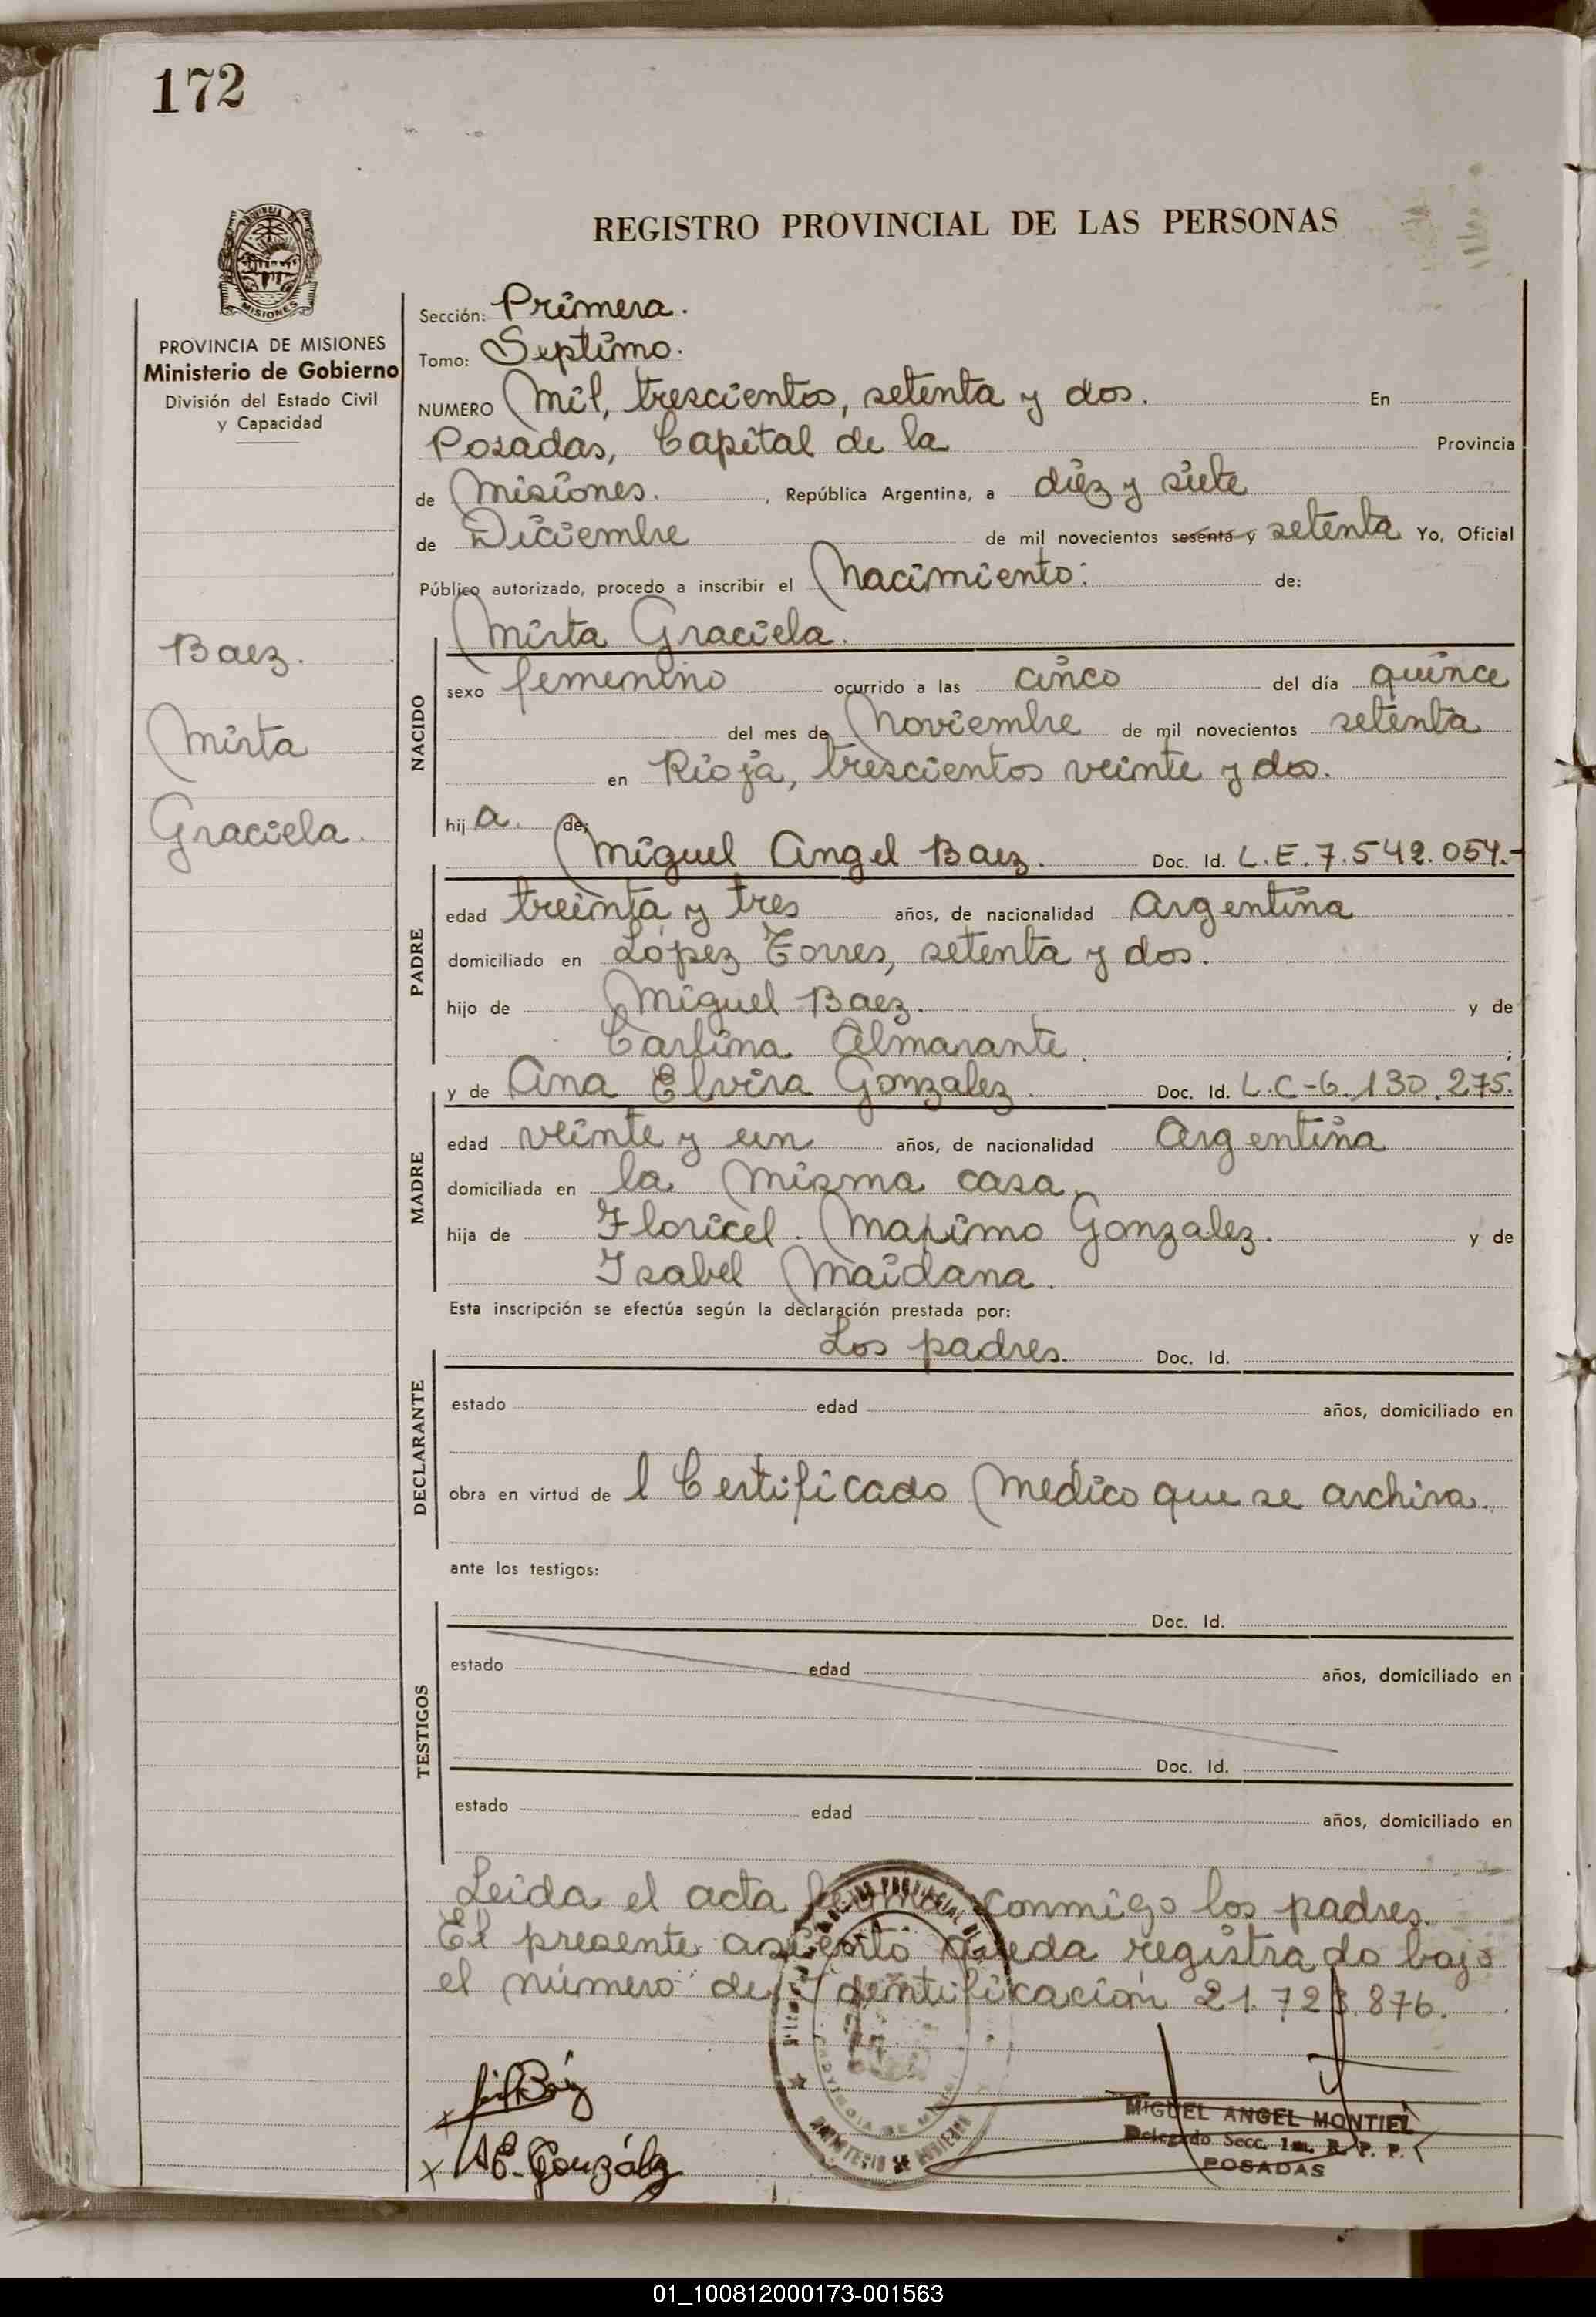 172
REGISTRO PROVINCIAL DE LAS PERSONAS
MISIONES
PROVINCIA DE MISIONES
Ministerio de Gobierno
División del Estado Civil
y Capacidad
Baez.
Mirta
Graciela.
Sección: Primera.
Tomo: Septimo.
NUMERO Mil, trescientos, setenta y dos. En
Posadas, Capital de la Provincia
de Misiones. , República Argentina, a diez y siete
de Diciembre de mil novecientos sesenta y setenta Yo, Oficial
Público autorizado, procedo a inscribir el Nacimiento: de:
Mirta Graciela.
NACIDO
sexo femenino ocurrido a las cinco del día quince
del mes de Noviembre de mil novecientos setenta
en Rioja, trescientos veinte y dos.
hij a. de:
Miguel Angel Baez. Doc. Id. L.E.7.542.054.-
PADRE
edad treinta y tres años, de nacionalidad Argentina
domiciliado en López Torres, setenta y dos.
hijo de Miguel Baez. y de
Carlina Almarante. ;
y de Ana Elvira Gonzalez. Doc. Id. L.C-6.130.275.
MADRE
edad veinte y un años, de nacionalidad Argentina
domiciliada en la misma casa.
hija de Floricel. Maximo Gonzalez. y de
Isabel Maidana.
Esta inscripción se efectúa según la declaración prestada por:
Los padres. Doc. Id.
DECLARANTE
estado edad años, domiciliado en
obra en virtud de l Certificado Médico que se archiva.
ante los testigos:
Doc. Id.
TESTIGOS
estado edad años, domiciliado en
Doc. Id.
estado edad años, domiciliado en
Leida el acta firman conmigo los padres.
El presente asiento queda registrado bajo
el número de Identificación 21.723.876.
A E. González
MIGUEL ANGEL MONTIEL
Delegado Secc. 1a. R. P. P.
POSADAS
01_100812000173-001563